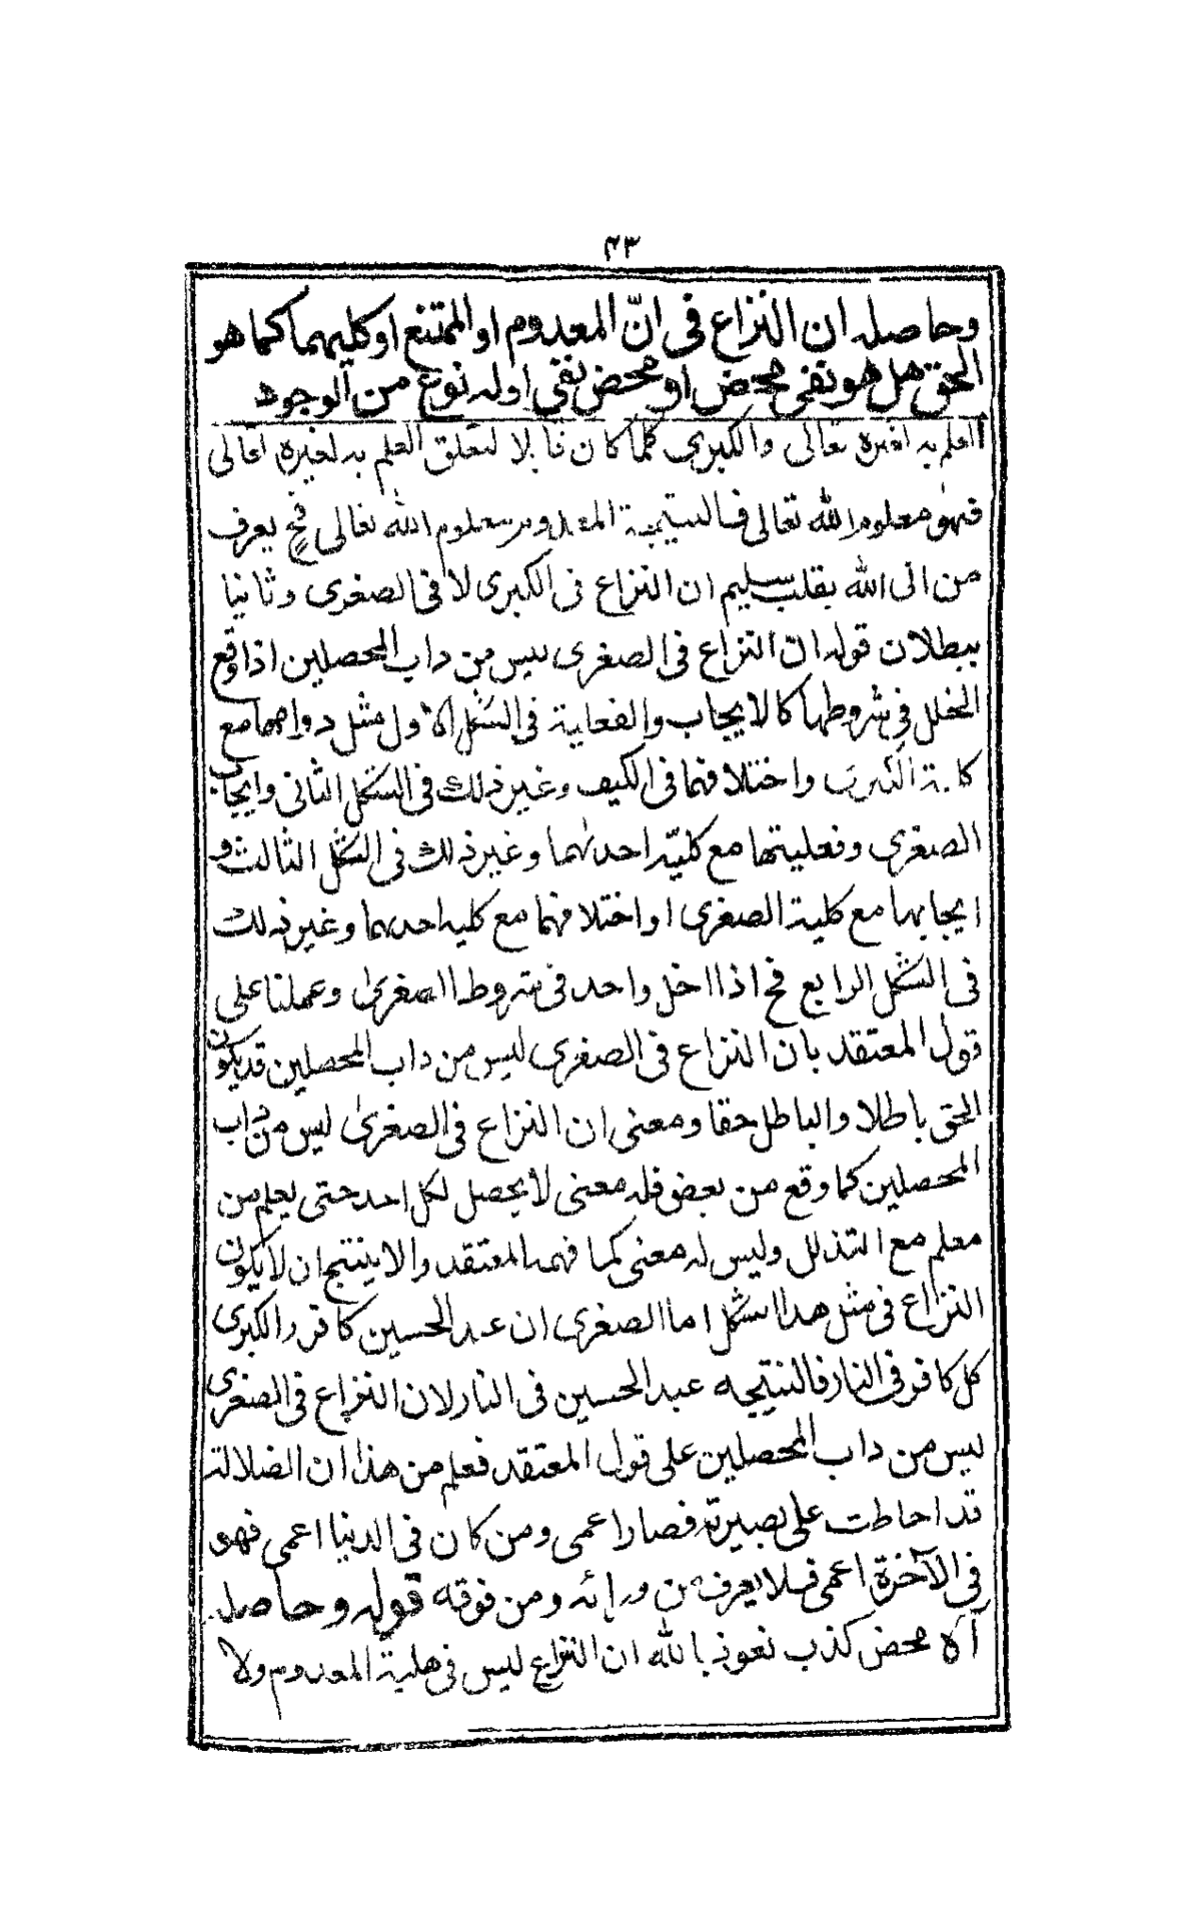 ٤٣
وحاصله ان النزاع فى انّ المعدوم او الممتنع او كليهما كما هو
الحق هل هو نفى محض او محض نفى او له نوع من الوجود
العلم به لغيره تعالى والكبرى كلما كان قابلا لتعلق العلم به لغيره تعالى
فهو معلوم الله تعالى فالنتيجة المعدوم معلوم الله تعالى فح يعرف
من اتى الله بقلب سليم ان النزاع فى الكبرى لا فى الصغرى وثانيا
ببطلان قوله انّ النزاع فى الصغرى ليس من داب المحصلين اذا وقع
الخلل فى شروطها كالايجاب والفعلية فى الشكل الاول مثل دوامهما مع
كلية الكبرى واختلافهما فى الكيف وغير ذلك فى الشكل الثانى وايجاب
الصغرى وفعليتها مع كليّة احدٰهما وغير ذلك فى الشكل الثالث و
ايجابهما مع كلية الصغرى او اختلافهما مع كلية احدهما وغير ذلك
فى الشكل الرابع فح اذا اخل واحد فى شروط الصغرىٰ وعملنا على
قول المعتقد بان النزاع فى الصغرى ليس من داب المحصلين قد يكون
الحق باطلا والباطل حقا ومعنى ان النزاع فى الصغرىٰ ليس من داب
المحصلين كما وقع من بعض فله معنى لا يحصل لكل احد حتى يعلم من
معلم مع التذلل وليس له معنى كما فهمه المعتقد والا ينتج ان لا يكون
النزاع فى مثل هذا الشكل اما الصغرى ان عبد الحسين كافر والكبرى
كل كافر فى النار فالنتيجه عبد الحسين فى النار لان النزاع فى الصغرى
ليس من داب المحصلين على قول المعتقد فعلم من هذا ان الضلالة
قد احاطت على بصيرته فصار اعمى ومن كان فى الدنيا اعمى فهو
فى الآخرة اعمى فلا يعرف من ورائه ومن فوقه قوله وحاصله
آه محض كذب نعوذ بالله ان النزاع ليس فى هلية المعدوم ولا